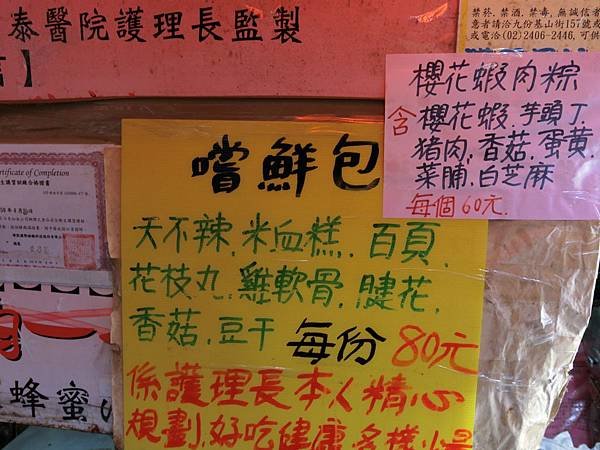 泰醫院護理長監製
】
禁菸. 禁酒. 禁毒. 無誠信者
意者請洽九份基山街157號或
或電洽(02)2406-2446, 可供
櫻花蝦肉粽
含櫻花蝦.芋頭丁.
豬肉.香菇.蛋黃.
菜脯.白芝麻
每個60元.
Certificate of Completion
嚐鮮包
天不辣.米血糕.百頁.
花枝丸.雞軟骨.腱花.
香菇.豆干 每份 80元
係護理長本人精心
規劃.好吃健康.多樣小
蜂蜜